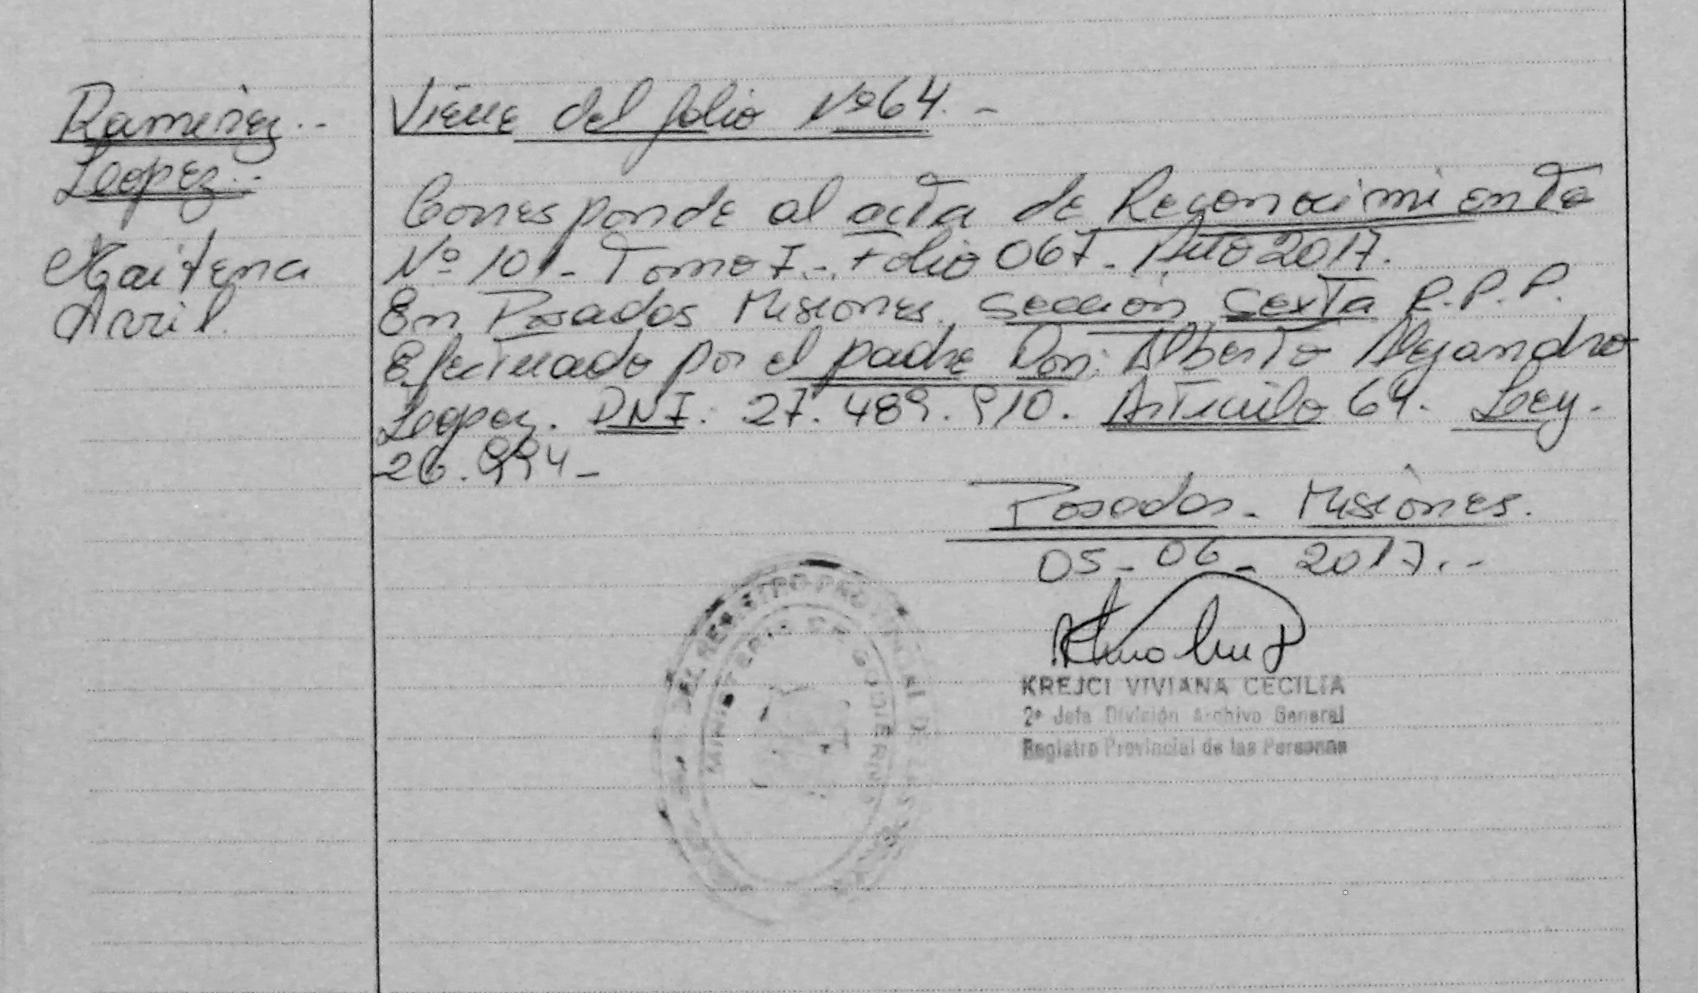 Ramirez..
Lopez..
Maitena
Avril.
Viene del folio Nº 64. -
Corresponde al acta de Reconocimiento
Nº 101 - Tomo I - Folio 067 - Año 2017.
En Posadas Misiones, Sección Sexta R.P.P.
Efectuado por el padre Don: Alberto Alejandro
Lopez. DNI: 27.489.910. Articulo 64. Ley.
26.994 -
Posadas - Misiones.
05 - 06 - 2017. -
KREJCI VIVIANA CECILIA
2º Jefa División Archivo General
Registro Provincial de las Personas
DEL REGISTRO PROVINCIAL DE LAS
MINISTERIO DE GOBIERNO